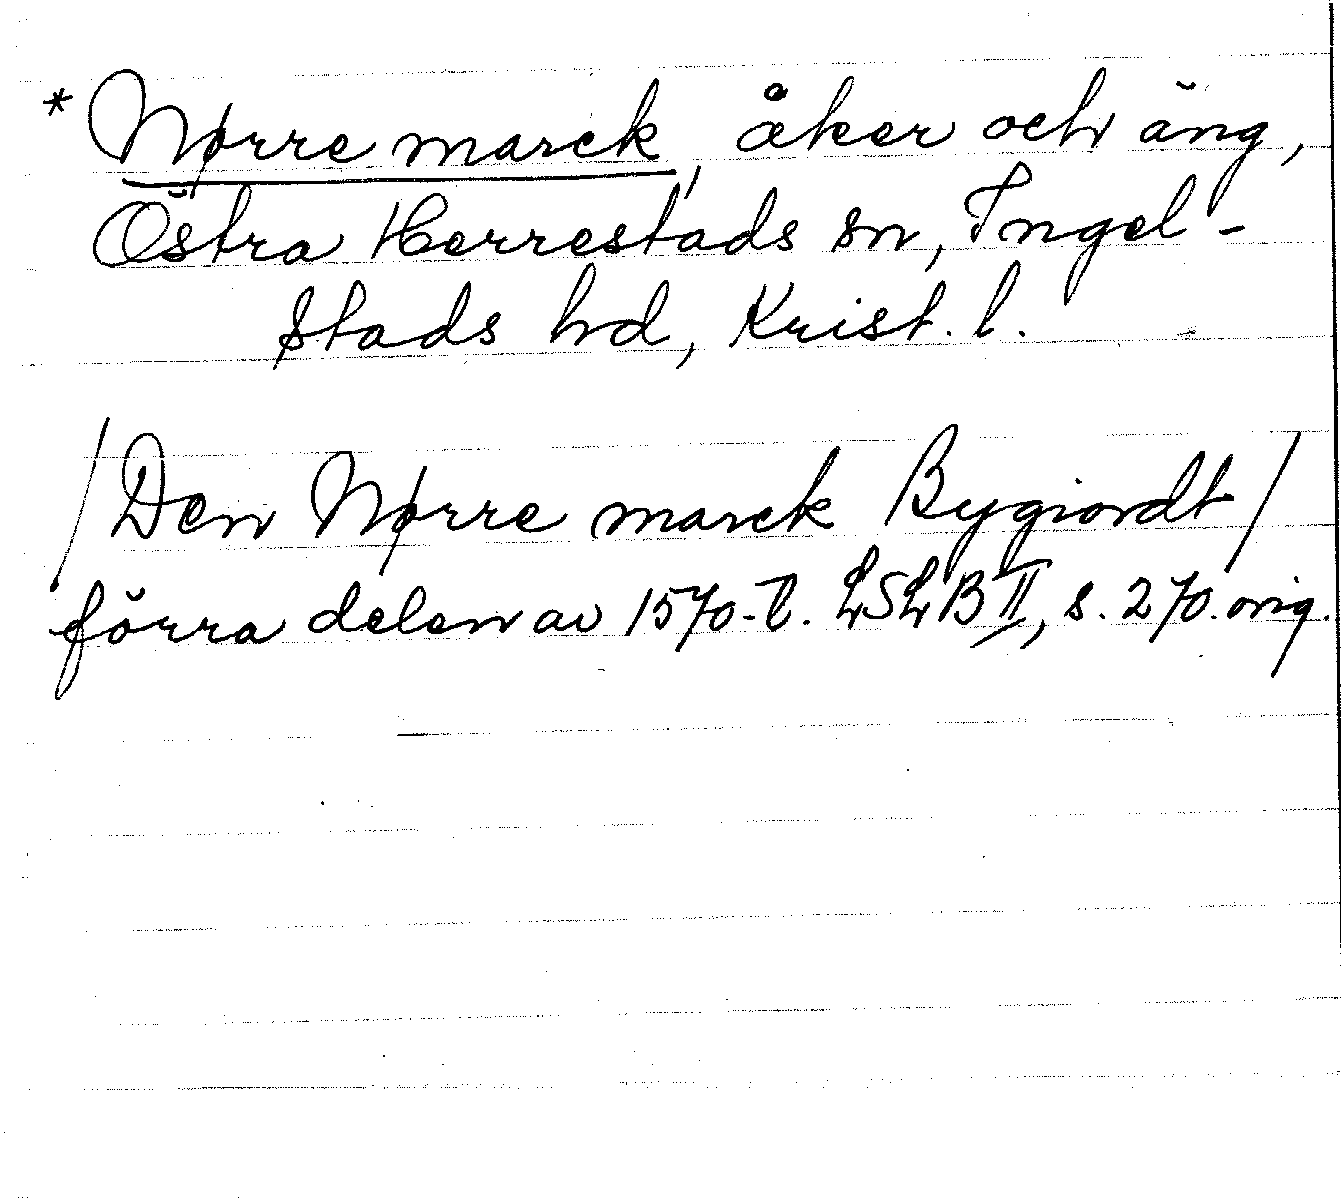 * Nørre marck, åker och äng,
Östra Herrestads sn, Ingel-
stads hd, Krist. l.
/Den Nørre marck Bygiordt/
förra delen av 1570-t. LSLB II, s. 270. orig.